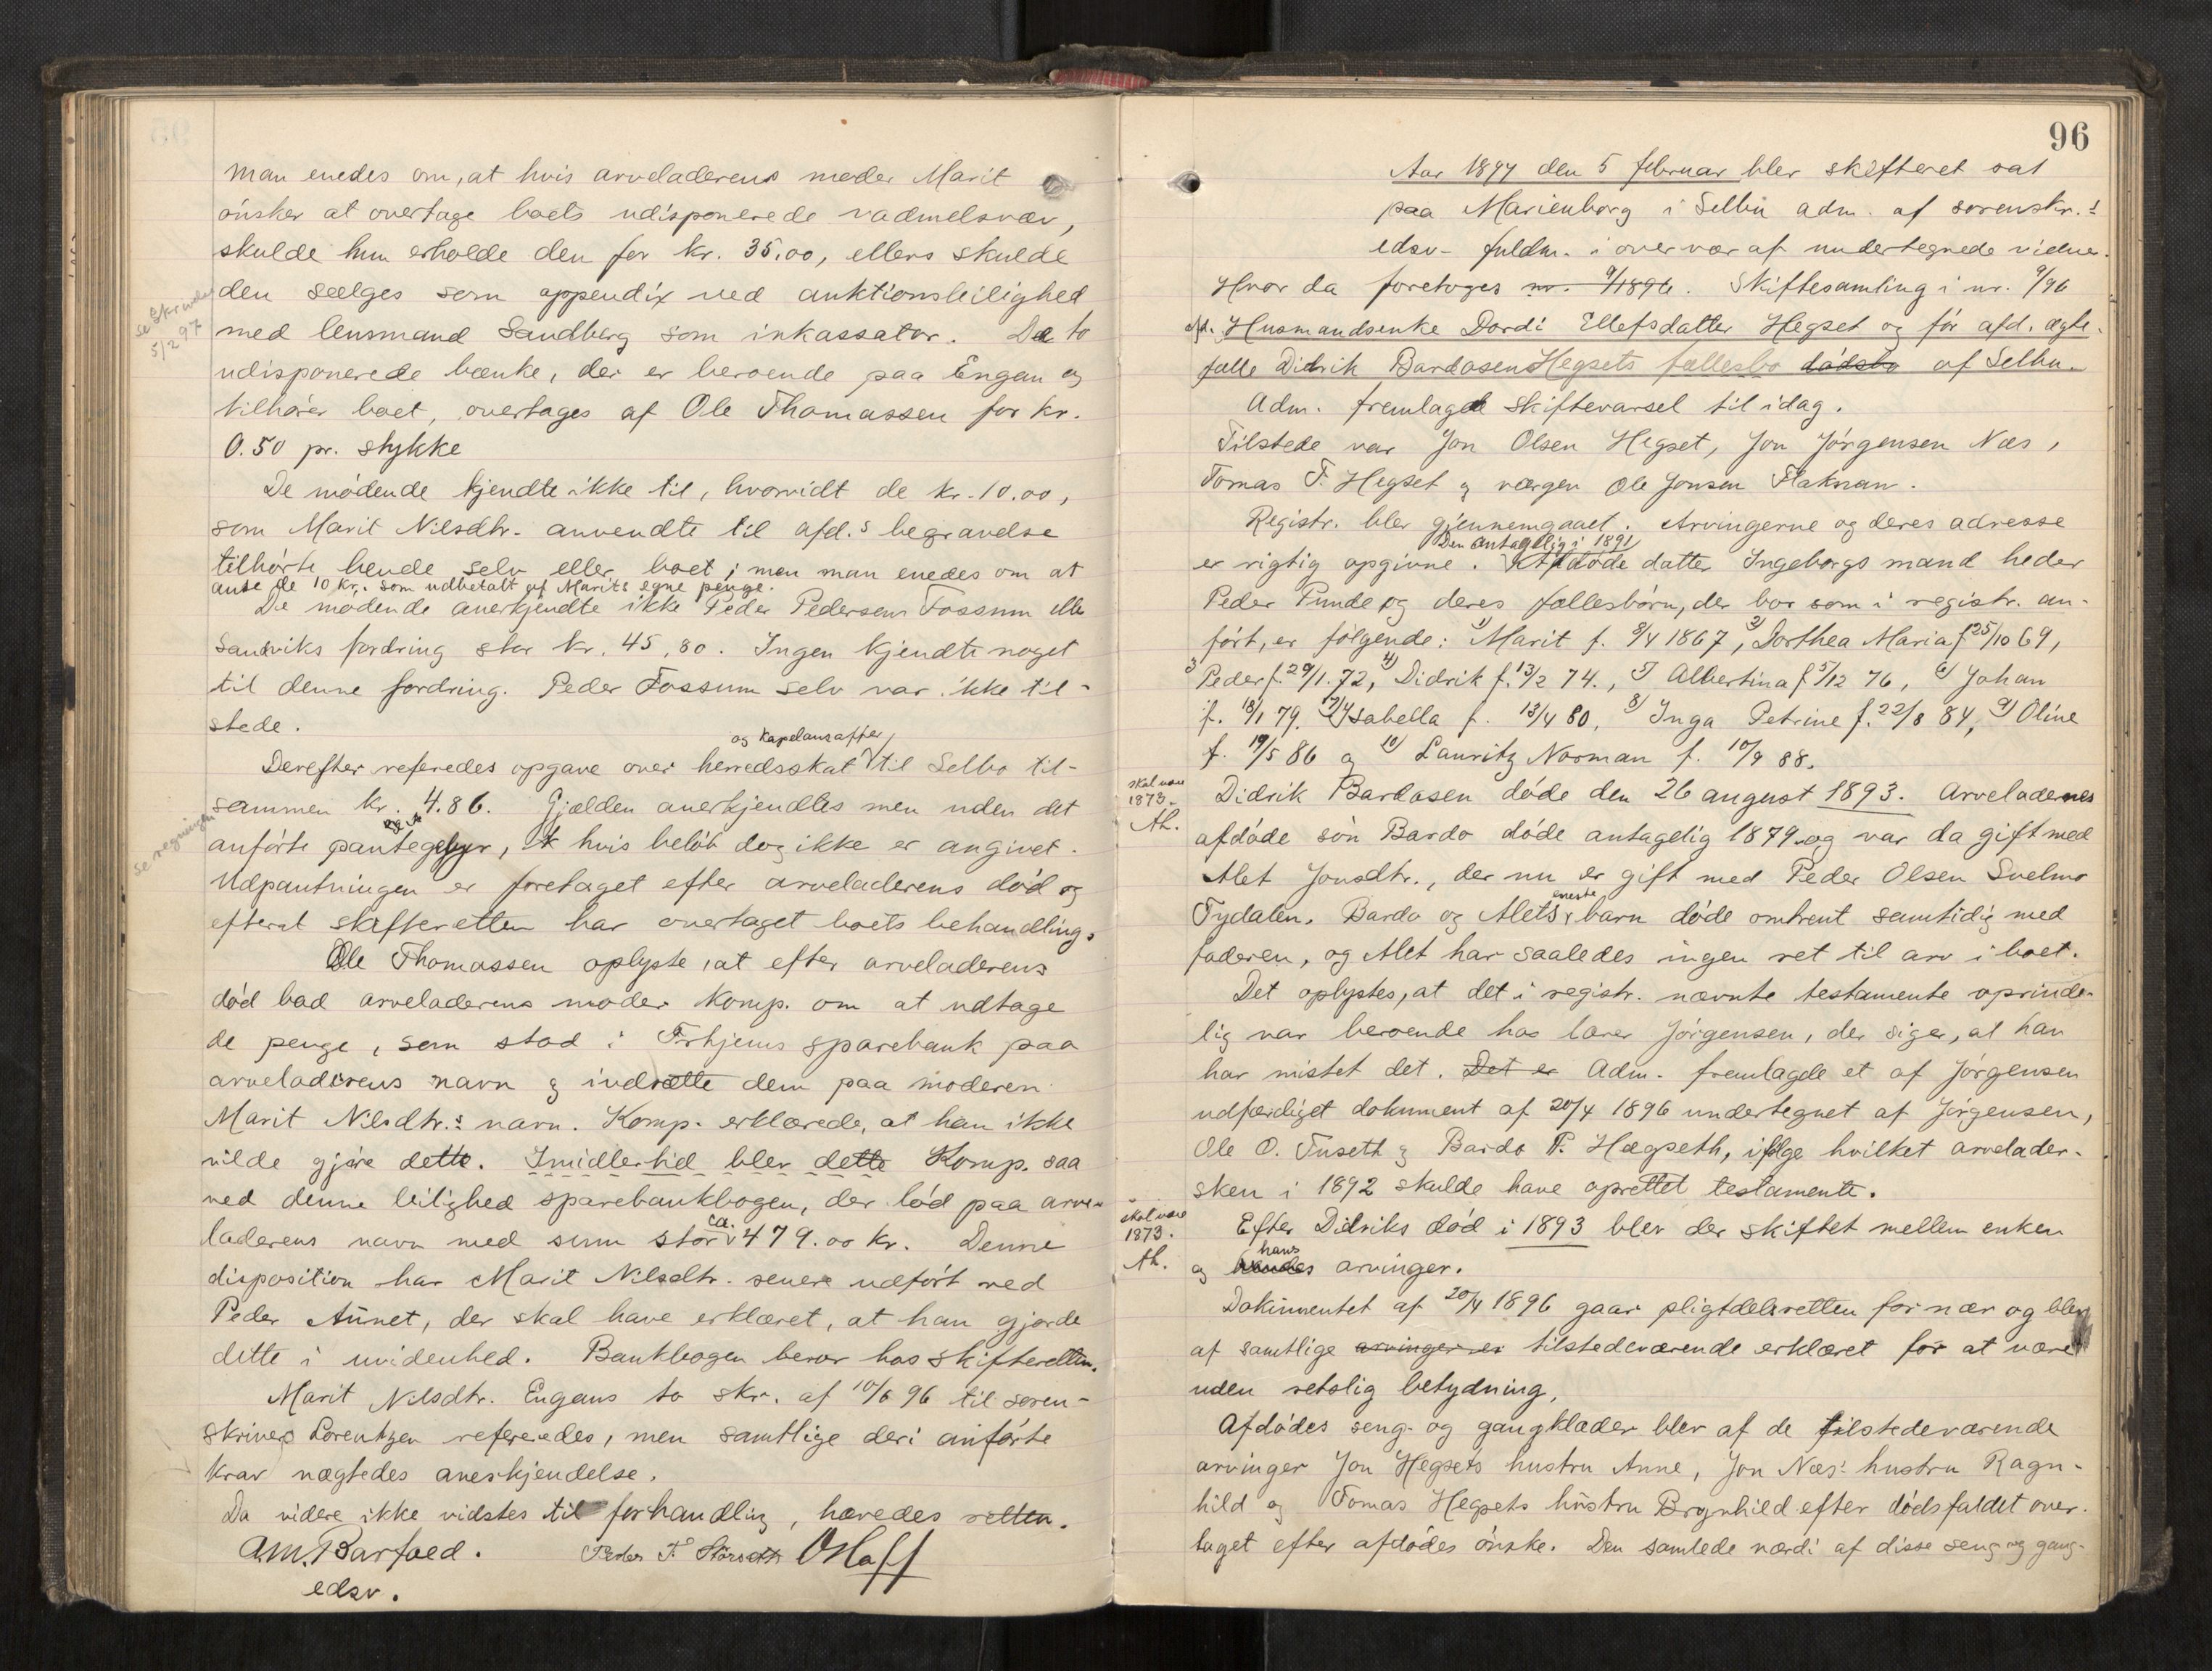 man enedes om, at hvis arveladerens moder Marit
ønsker at overtage boets udisponerede vadmelsvæv,
skulde hun erholde den for kr. 35,00, ellers skulde
den sælges som appendix ved auktionsleilighed
med lensmand Sandberg som inkassator. De to
udisponerede bænke, der er beroende paa Engan og
tilhører boet, overtages af Ole Thomassen for kr.
0.50 pr. stykke
De mødende kjendte ikke til, hvorvidt de kr. 10.00,
som Marit Nilsdtr. anvendte til afd.s begravelse
tilhørte hende selv eller boet; men man enedes om at
anse de 10 kr. som udbetalt af Marits egne penge.
De mødende anerkjendte ikke Peder Pedersen Fossum eller
Sandviks fordring stor kr. 45,80. Ingen kjendte noget
til denne fordring. Peder Fossum selv var ikke til-
stede.
og kapelansafter
Derefter referedes opgave over herredsskat til Selbo til-
sammen kr. 4.86. Gjælden anerkjendtes men uden det
anførte pantegebyr, hvis beløb dog ikke er angivet.
Udpantningen er foretaget efter arveladerens død og
efterat skifteretten har overtaget boets behandling.
Ole Thomassen oplyste, at efter arveladerens
død bad arveladerens moder komp. om at udtage
de penge, som stod i Trhjems sparebank paa
arveladerens navn og indsætte dem paa moderen
Marit Nilsdtr.s navn. Komp. erklærede, at han ikke
vilde gjøre dette. Imidlertid blev dette Komp. saa
ved denne leilighed sparebankbogen, der lød paa arve-
laderens navn med sum stor ca. 479.00 kr. Denne
disposition har Marit Nilsdtr. senere udført ved
Peder Aunet, der skal have erklæret, at han gjorde
dette i uvidenhed. Bankbogen beror hos skifteretten.
Marit Nilsdtr. Engans to skr. af 10/6 96 til soren-
skriver Lorentzen refereredes, men samtlige deri anførte
krav nægtedes anerkjendelse.
Da videre ikke vidstes til forhandling, hævedes retten.
A.M. Barfoed. Peder T. Størseth OHaff
edsv.
se Skrivelse
5/2 97
se regningen
96
Aar 1897 den 5 februar blev skifteret sat
paa Marienborg i Selbu adm. af sorenskr.s
edsv. fuldm. i overvær af undertegnede vidner.
Hvor da foretoges nr. 9/1896. Skiftesamling i nr. 9/96
afd. Husmandsenke Dordi Ellefsdatter Hegset og før afd. ægte-
fælle Didrik Bardosen Hegsets fællesbo dødsbo af Selbu.
Adm. fremlagde skiftevarsel til idag.
Tilstede var Jon Olsen Hegset, Jon Jørgensen Næs,
Tomas T. Hegset og værgen Ole Jonsen Flaknan.
Registr. blev gjennemgaaet. Arvingerne og deres adresse
Den antagelig i 1891
er rigtig opgivne. Afdøde datter Ingeborgs mand heder
Peder Punde og deres fællesbørn, der bor som i registr. an-
ført, er følgende: 1) Marit f. 8/4 1867, 2) Dorthea Maria f. 25/10 69,
3 Peder f. 29/1. 72, 4) Didrik f. 13/2 74., 5) Albertina f 5/12 76, 6) Johan
f. 18/1 79. 7) Isabella f. 13/4 80, 8) Inga Petrine f. 22/8 84, 9) Oline
f. 19/5 86 og 10) Lauritz Norman f. 10/9 88.
skal være
1873.
Ah.
Didrik Bardosen døde den 26 august 1893. Arveladernes
afdøde søn Bardo døde antagelig 1879 og var da gift med
Alet Jonsdtr., der nu er gift med Peder Olsen Svelmo
Tydalen. Bardo og Alets eneste barn døde omtrent samtidig med
faderen, og Alet har saaledes ingen ret til arv i boet.
Det oplystes, at det i registr. nævnte testamente oprinde-
lig var beroende hos lærer Jørgensen, der siger, at han
har mistet det. Det er Adm. fremlagde et af Jørgensen
udfærdiget dokument af 20/4 1896 undertegnet af Jørgensen,
Ole O. Fuseth og Bardo T. Hægseth, ifølge hvilket arvelader-
sken i 1892 skulde have oprettet testamente.
skal være
1873.
Ah.
Efter Didriks død i 1893 blev der skiftet mellem enken
og hans arvinger.
Dokumentet af 20/4 1896 gaar pligtdelsretten for nær og blev
af samtlige arvinger er tilstedeværende erklæret for at være
uden retslig betydning.
Afdødes seng- og gangklæder blev af de tilstedeværende
arvinger Jon Hegsets hustru Anne, Jon Næs' hustru Ragn-
hild og Tomas Hegsets hustru Brynhild efter dødsfaldet over-
taget efter afdødes ønske. Den samlede værdi af disse seng og gang-